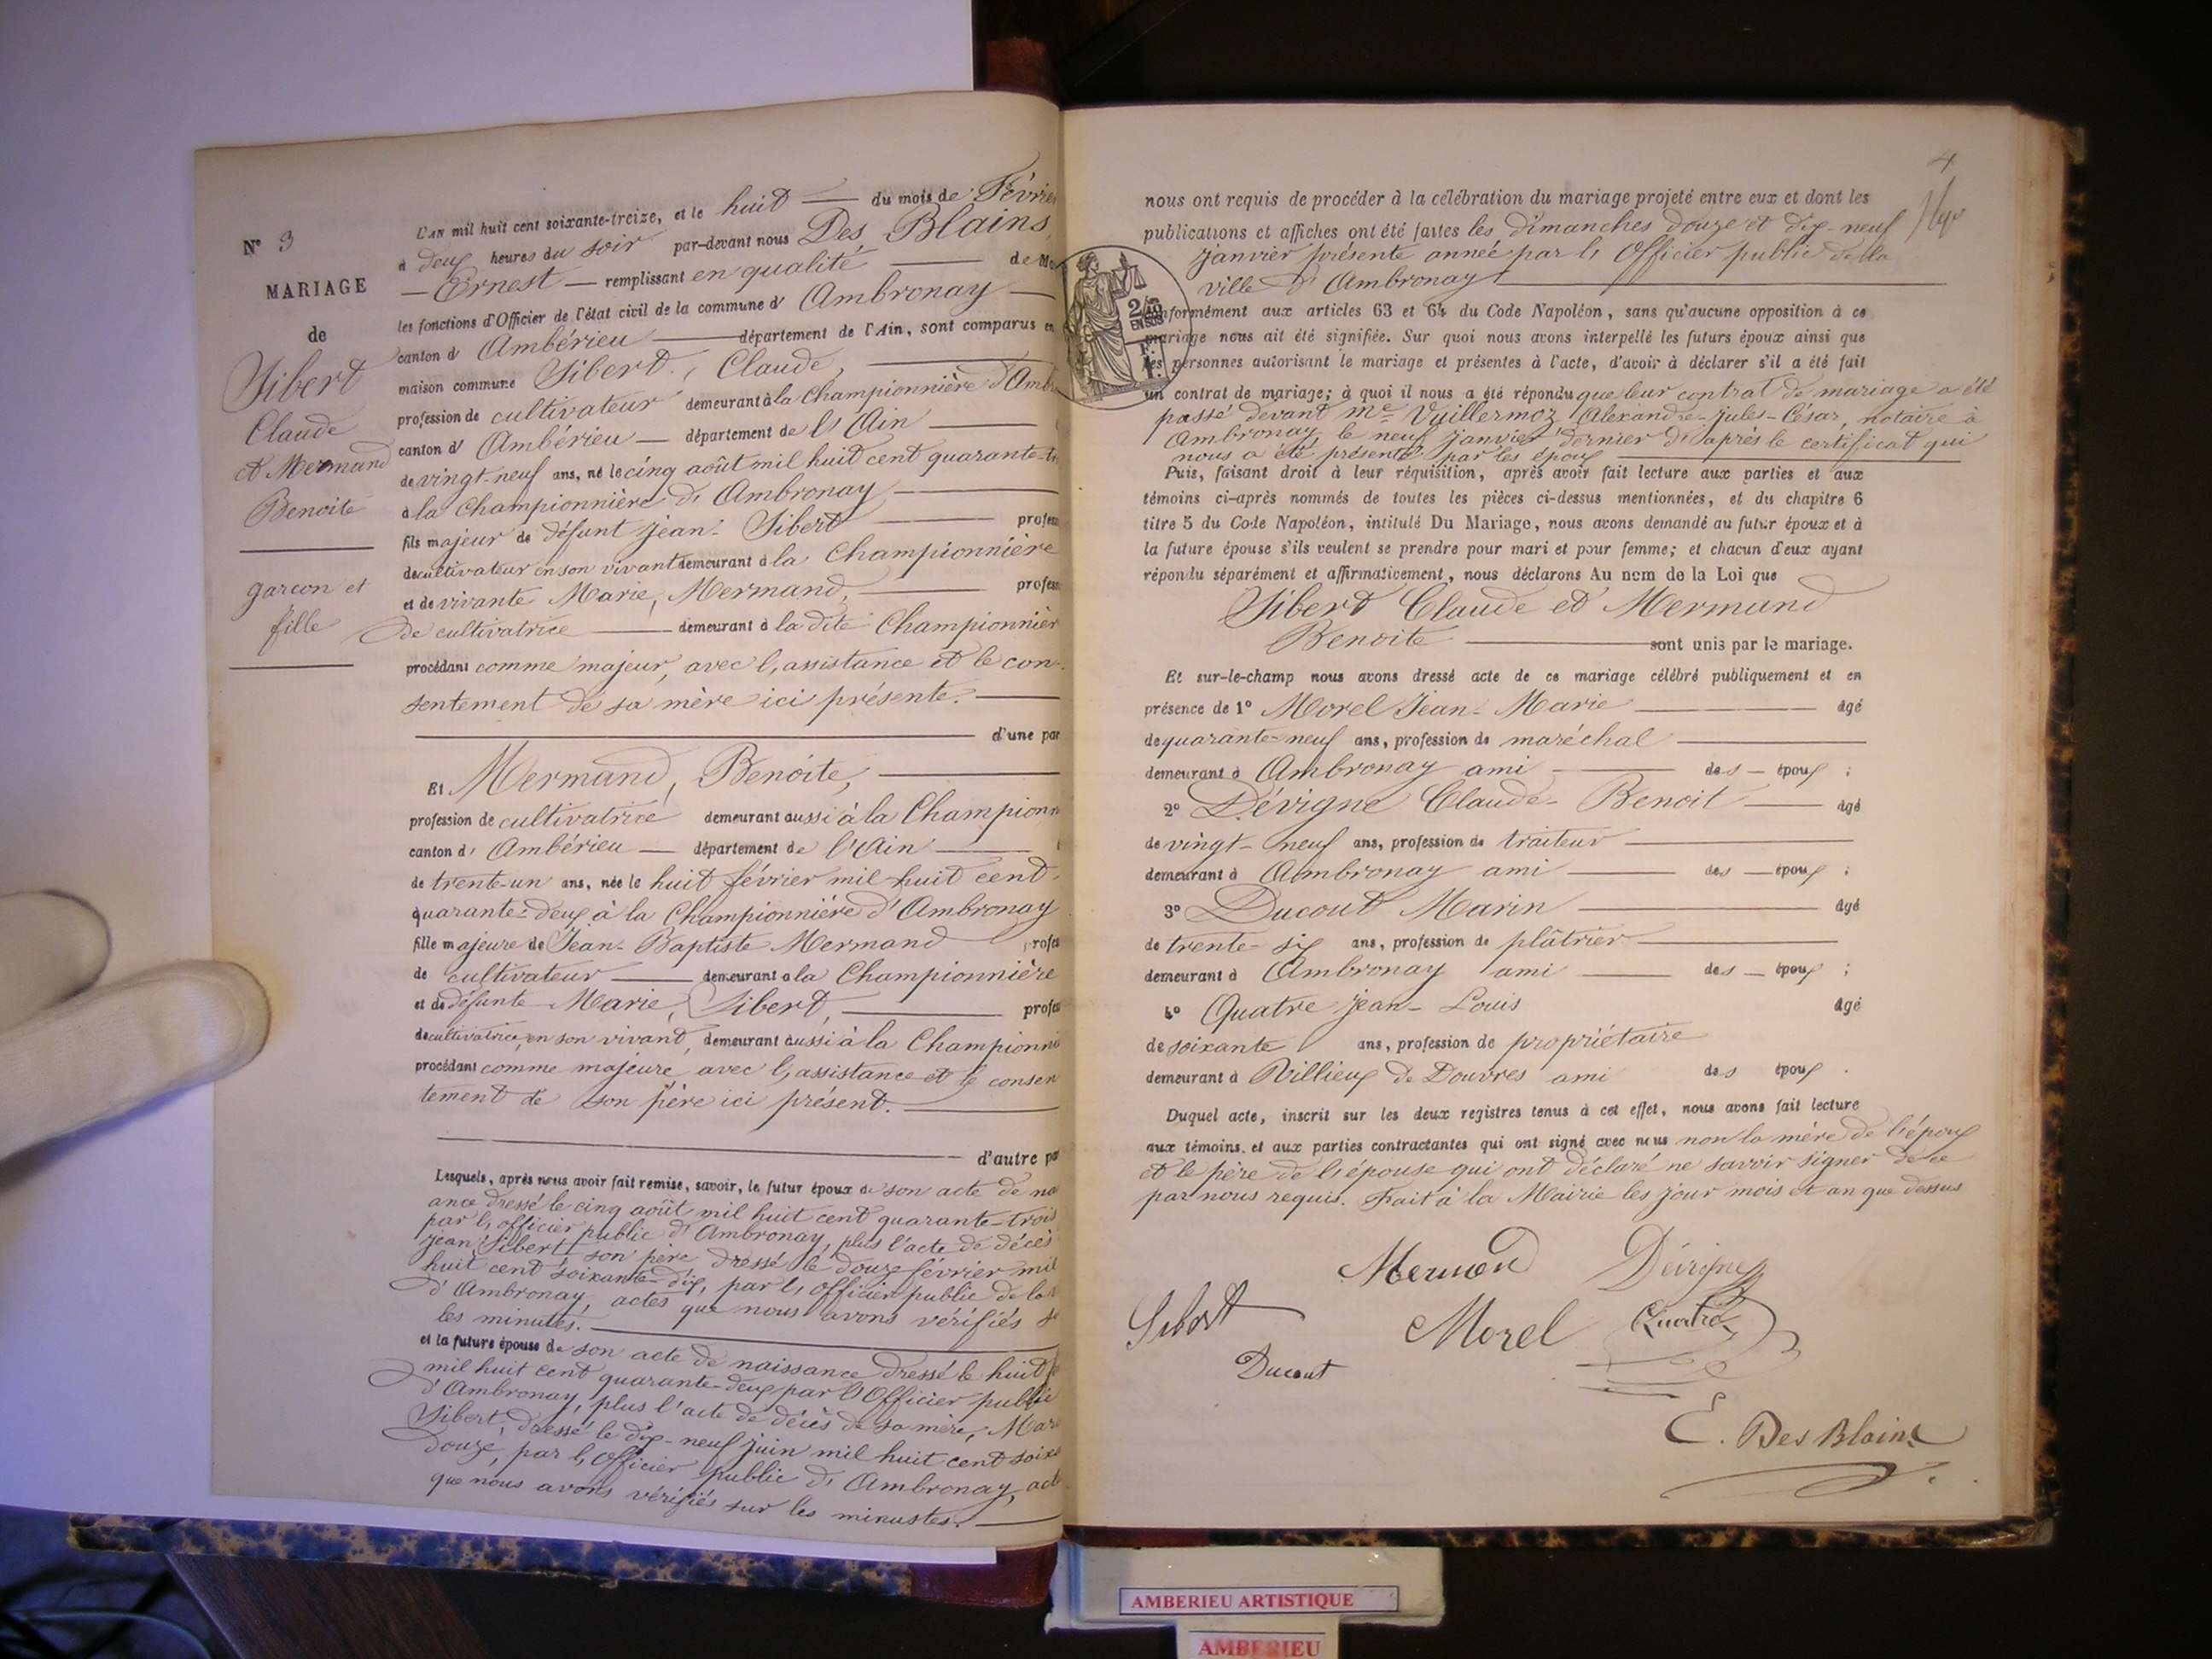 N° 3
MARIAGE
de
Sibert
Claude
et Mermand
Benoite
garcon et
fille
L'AN mil huit cent soixante-treize, et le huit du mois de Févrie
à deux heures du soir par-devant nous Des Blains,
Ernest remplissant en qualité de Ma
les fonctions d'Officier de l'état civil de la commune d' Ambronay
canton d' Ambérieu département de l'Ain, sont comparus en
maison commune Sibert, Claude,
profession de cultivateur demeurant à la Championnière d'Amb
canton d' Ambérieu département de l'Ain
de vingt-neuf ans, né le cinq août mil huit cent quarante-tr
à la Championnière d'Ambronay
fils majeur de défunt Jean Sibert profess
de cultivateur en son vivant demeurant à la Championnière
et de vivante Marie, Mermand, profess
de cultivatrice demeurant à la dite Championnièr
procédant comme majeur, avec l'assistance et le con-
sentement de sa mère ici présente.
d'une par
Et Mermand, Benoite,
profession de cultivatrice demeurant aussi à la Championn
canton d' Ambérieu département de l'Ain
de trente-un ans, née le huit février mil huit cent
quarante-deux à la Championnière d'Ambronay
fille majeure de Jean-Baptiste Mermand profes
de cultivateur demeurant à la Championnière
et de défunte Marie, Sibert, profes
de cultivatrice en son vivant, demeurant aussi à la Championni
procédant comme majeure avec l'assistance et le consen
tement de son père ici présent.
d'autre pa
Lesquels, après nous avoir fait remise, savoir, le futur époux de son acte de na
ance dressé le cinq août mil huit cent quarante-trois
par l'officier public d'Ambronay, plus l'acte de décès
Jean Sibert son père dressé le douze février mil
huit cent soixante-dix, par l'officier public de la
d'Ambronay, actes que nous avons vérifiés s
les minutes.
et la future épouse de son acte de naissance dressé le huit f
mil huit cent quarante-deux par l'Officier public
d'Ambronay, plus l'acte de décès de sa mère, Mar
Sibert, dressé le dix-neuf juin mil huit cent soixa
douze, par l'Officier public d'Ambronay, act
que nous avons vérifiés sur les minustes.
4
nous ont requis de procéder à la célébration du mariage projeté entre eux et dont les
publications et affiches ont été faites les Dimanches douze et dix-neuf
janvier présente année par l'Officier public de la
ville d'Ambronay
2/10 EN SUS
nformément aux articles 63 et 64 du Code Napoléon, sans qu'aucune opposition à ce
mariage nous ait été signifiée. Sur quoi nous avons interpellé les futurs époux ainsi que
les personnes autorisant le mariage et présentes à l'acte, d'avoir à déclarer s'il a été fait
un contrat de mariage; à quoi il nous a été répondu que leur contrat de mariage a été
passé devant Me Vuillermoz Alexandre-Jules-César, notaire à
Ambronay, le neuf janvier dernier d'après le certificat qui
nous a été présenté par les époux
Puis, faisant droit à leur réquisition, après avoir fait lecture aux parties et aux
témoins ci-après nommés de toutes les pièces ci-dessus mentionnées, et du chapitre 6
titre 5 du Code Napoléon, intitulé Du Mariage, nous avons demandé au futur époux et à
la future épouse s'ils veulent se prendre pour mari et pour femme; et chacun d'eux ayant
répondu séparément et affirmativement, nous déclarons Au nom de la Loi que
Sibert Claude et Mermand
Benoite sont unis par le mariage.
Et sur-le-champ nous avons dressé acte de ce mariage célébré publiquement et en
présence de 1° Morel Jean-Marie âgé
de quarante-neuf ans, profession de maréchal
demeurant à Ambronay ami des époux ;
2° Dévigne Claude-Benoit âgé
de vingt-neuf ans, profession de traiteur
demeurant à Ambronay ami des époux ;
3° Ducout Marin âgé
de trente-six ans, profession de plâtrier
demeurant à Ambronay ami des époux ;
4° Quatre Jean-Louis âgé
de soixante ans, profession de propriétaire
demeurant à Villieux de Douvres ami des époux .
Duquel acte, inscrit sur les deux registres tenus à cet effet, nous avons fait lecture
aux témoins et aux parties contractantes qui ont signé avec nous non la mère de l'époux
et le père de l'épouse qui ont déclaré ne savoir signer de ce
par nous requis. Fait à la Mairie les jour mois et an que dessus
Mermond Dévigne
Sibert Morel Quatre
Ducout
E. Des Blains
AMBERIEU ARTISTIQUE
AMBERIEU